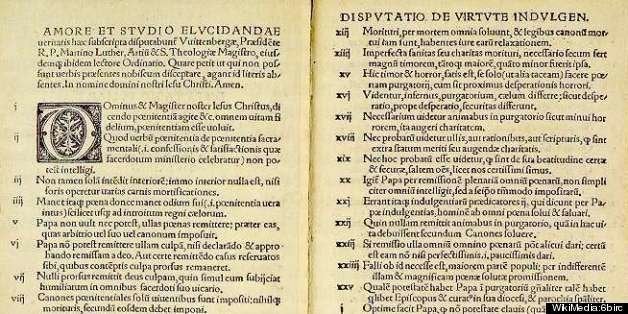 AMORE ET STVDIO ELVCIDANDAE
ueritatis hæc subscripta disputabunť Vuittenbergæ, Præsidẽte
R. P. Martino Luther, Artiũ & S. Theologiæ Magistro, eius-
demq; ibidem lectore Ordinario. Quare petit ut qui non pos-
sunt uerbis præsentes nobiscum disceptare, agant id literis ab-
sentes. In nomine domini nostri Iesu Christi. Amen.
i Ominus & Magister noster Iesus Christus, di-
cendo pœnitentiã agite &c. omnem uitam fi-
delium, pœnitentiam esse uoluit.
ij Quod uerbũ pœnitentia de pœnitentia sacra-
mentali (.i. confessionis & satisfactionis quæ
sacerdotum ministerio celebratur) non po-
test intelligi.
iij Non tamen solã intẽdit interiorẽ: immo interior nulla est, nisi
foris operetur uarias carnis mortificationes.
iiij Manet itaq; pœna donec manet odium sui (.i. pœnitentia uera
intus) scilicet usq; ad introitum regni cælorum.
v Papa non uult nec potest, ullas pœnas remittere: præter eas,
quas arbitrio uel suo uel canonum imposuit.
vj Papa nõ potest remittere ullam culpã, nisi declarãdo & appro-
bando remissam a deo. Aut certe remittẽdo casus reseruatos
sibi, quibus cõtẽptis culpa prorsus remaneret.
vij Nulli prorsus remittit deus culpam, quin simul eum subijciat
humiliatum in omnibus sacerdoti suo uicario.
viij Canones pœnitentiales solũ uiuentibus sunt impositi: nihilq;
morituris, secundũ eosdem debet imponi.
DISPVTATIO DE VIRTVTE INDVLGEN.
xiij Morituri, per mortem omnia soluunt, & legibus canonũ mor-
tui iam sunt, habentes iure earũ relaxationem.
xiiij Imperfecta sanitas seu charitas morituri, necessario secum fert
magnũ timorem, tãtoq; maiorẽ, quãto minor fuerit ipsa.
xv Hic timor & horror, satis est, se solo (ut alia taceam) facere pœ-
nam purgatorij, cum sit proximus desperationis horrori.
xvj Videntur, infernus, purgatorium, cælum differre; sicut despe-
ratio, prope desperatio, securitas differunt.
xvij Necessarium uidetur animabus in purgatorio sicut minui hor-
rorem, ita augeri charitatem.
xviij Nec probatũ uidetur ullis, aut rationibus, aut scripturis, q; sint
extra statum meriti seu augendæ charitatis.
xix Nec hoc probatũ esse uidetur, q; sint de sua beatitudine certæ
& securæ, saltem oẽs, licet nos certissimi simus.
xx Igiť Papa per remissionẽ plenariã omniũ pœnarũ, non simpli-
citer omniũ intelligit, sed a seipo tãtummodo impositarũ.
xxj Errant itaq; indulgentiarũ prædicatores ij, qui dicunt per Pa-
pæ indulgentias, hominẽ ab omni pœna solui & saluari.
xxij Quin nullam remittit animabus in purgatorio, quã in hac ui-
ta debuissent secundum Canones soluere.
xxiij Si remissio ulla omniũ omnino pœnarũ põt alicui dari; certũ
est eam nõ nisi perfectissimis, i. paucissimis dari.
xxiiij Falli ob id necesse est, maiorem partẽ populi: per indifferentẽ
illam & magnificam pœnæ solutæ promissionem.
xxv Qualẽ potestatẽ habet Papa ĩ purgatoriũ gñaliter talẽ habet
quilibet Episcopus & curatus in sua diœcesi, & parochia spãliter.
i Optime facit Papa, q;
WikiMedia:6birc